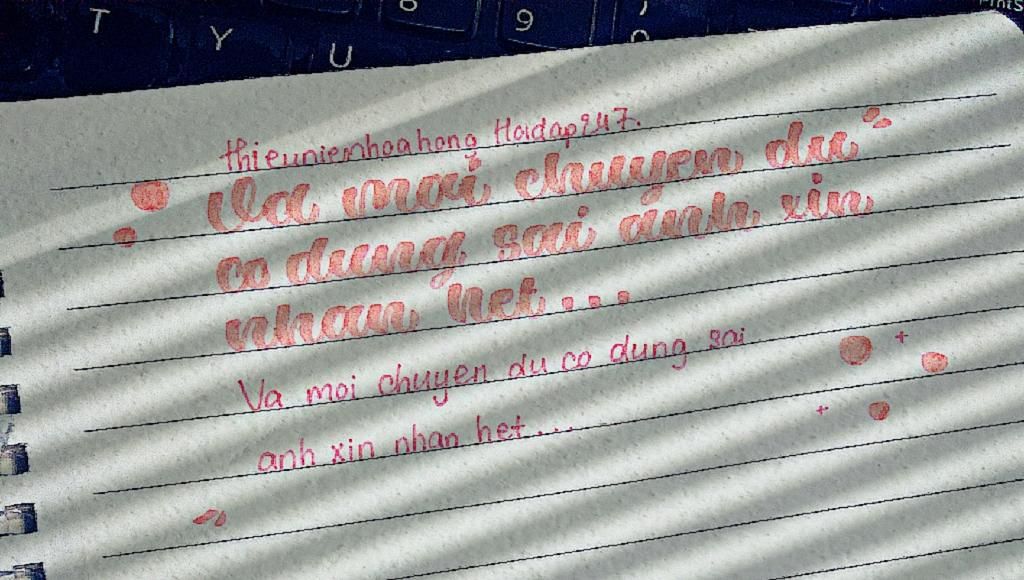 T Y U 8 9
thieunienhoahong Hoidap247.
Va moi chuyen du
co dung sai anh xin
nhan het...
Va moi chuyen du co dung sai
anh xin nhan het...